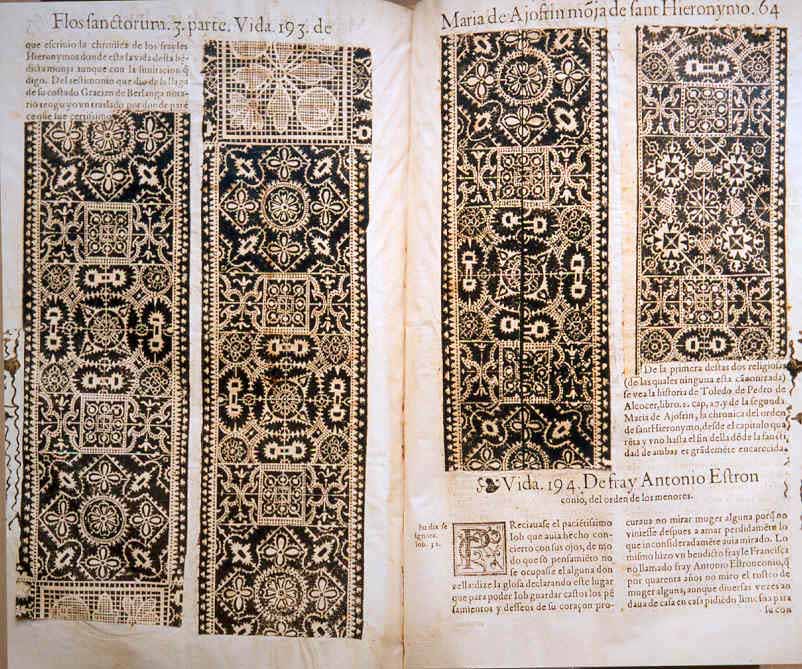 Flos sanctorum. 3. parte. Vida. 193. de
que escriuio la chronica de los frayles
Hieronymos donde esta la vida desta bē
dicta monja aunque con la limitacion q̄
digo. Del testimonio que dio de la llaga
de su costado Gracian de Berlanga nota-
rio tengo yo vn traslado por donde pare
ce que fue certissimo
Maria de Ajofrin mōja de sant Hieronymo. 64
De la primera destas dos religiosas
(de las quales ninguna esta canonizada)
se vea la historia de Toledo, de Pedro de
Alcocer, libro. 2. cap, 17. y de la segunda,
Maria de Ajofrin, la chronica del orden
de sant Hieronymo, desde el capitulo qua
rēta y vno hasta el fin della dōde la sancti
dad de ambas es grādemēte encarecida.
Vida. 194. De fray Antonio Estron
conio, del orden de los menores.
Iob. 31.
PReciauase el paciētissimo
Iob que auia hecho con-
cierto con sus ojos, de mo
do que so pensamiēto no
se ocupasse el alguna don
zella: dize la glosa declarando este lugar
que para poder Iob guardar castos los pē
samientos y desseos de su coraçon pro-
curaua no mirar muger alguna porq̄ no
viniesse despues a amar perdidamēte lo
que inconsideradamēte auia mirado. Lo
mismo hizo vn bendicto frayle Francisca
no llamado fray Antonio Estronconio, q̄
por quarenta años no miro el rostro de
muger alguna, aunque diuersas vezes an
daua de casa en casa pidiēdo limosna para
su con